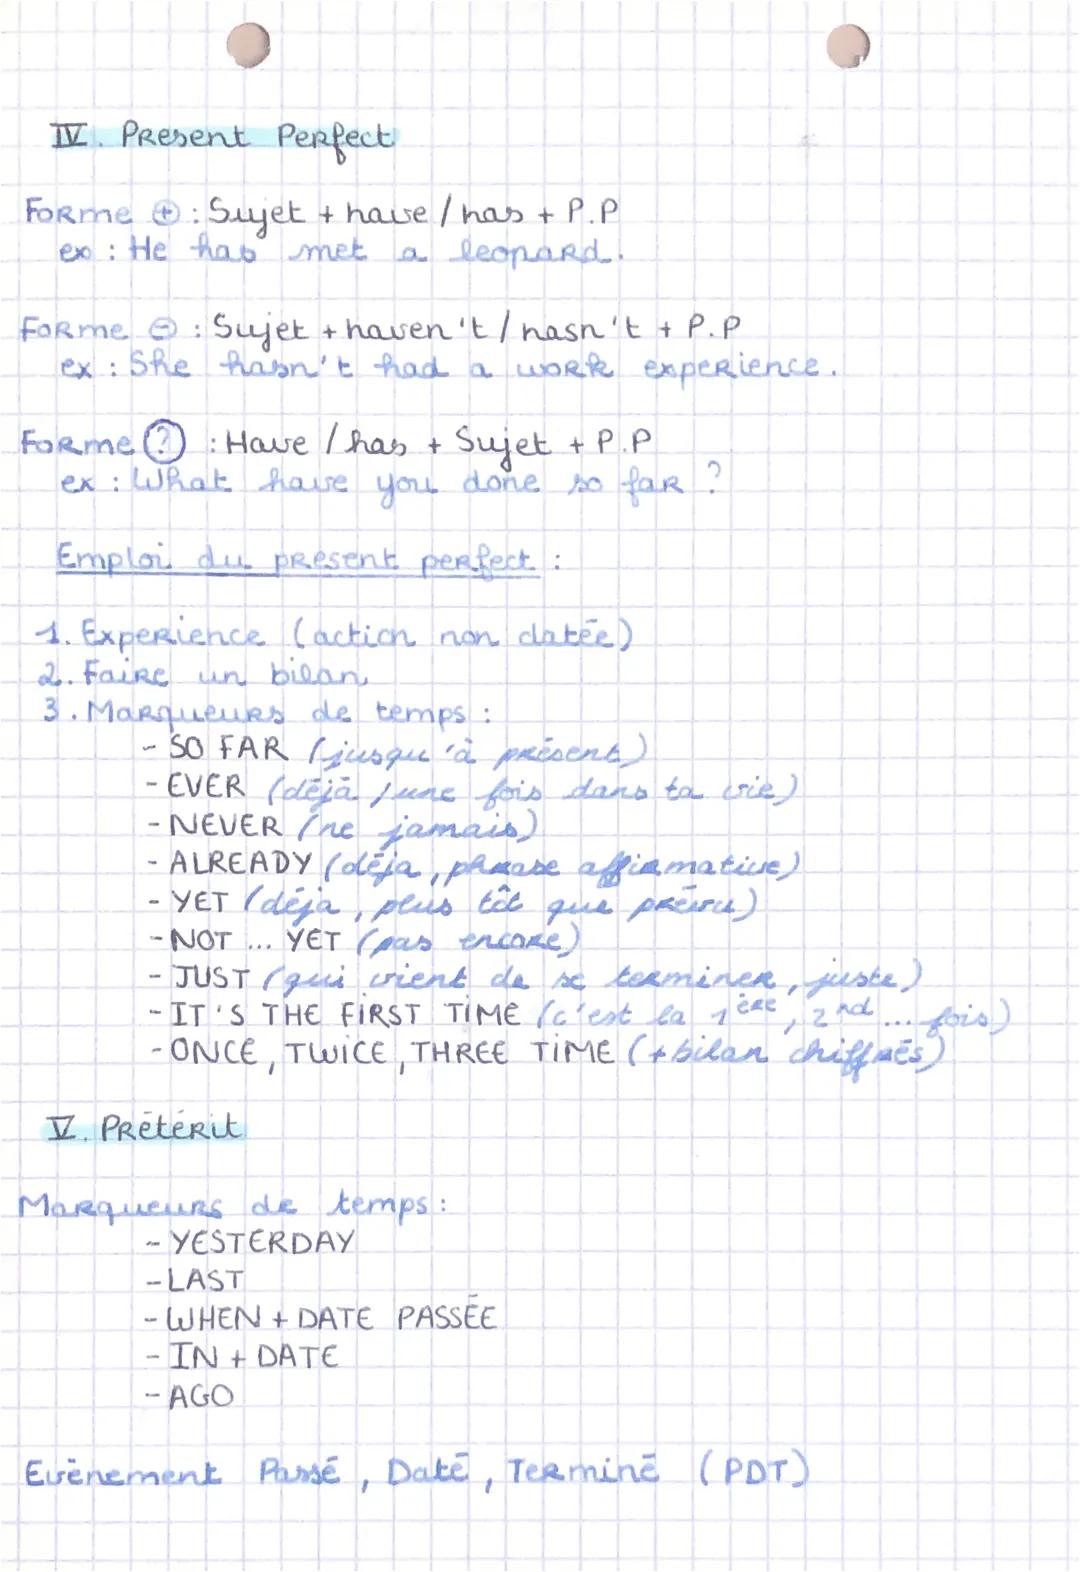 IV. Present Perfect
Forme ⊕ : Sujet + have / has + P.P
ex : He has met a leopard.
Forme ⊖ : Sujet + haven't / hasn't + P.P
ex : She hasn't had a work experience.
Forme ? : Have / has + Sujet + P.P
ex : What have you done so far ?
Emploi du present perfect :
1. Experience (action non datée)
2. Faire un bilan
3. Marqueurs de temps :
- SO FAR (jusqu'à présent)
- EVER (déjà, une fois dans ta vie)
- NEVER (ne jamais)
- ALREADY (déja, phrase affirmative)
- YET (déja, plus tôt que prévu)
- NOT ... YET (pas encore)
- JUST (qui vient de se terminer, juste)
- IT'S THE FIRST TIME (c'est la 1ère, 2nd ... fois)
- ONCE, TWICE, THREE TIME (+ bilan chiffrés)
V. Prétérit
Marqueurs de temps :
- YESTERDAY
- LAST
- WHEN + DATE PASSÉE
- IN + DATE
- AGO
Evènement Passé, Daté, Terminé (PDT)